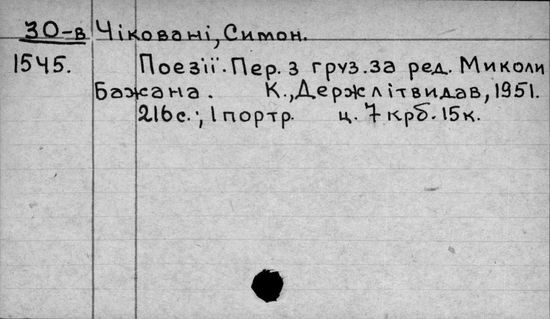 30-в Чіковані, Симон.
1545. Поезії. Пер. з груз. за ред. Миколи
Бажана. К., Держлітвидав, 1951.
216с.; 1 портр. ц. 7 крб. 15к.